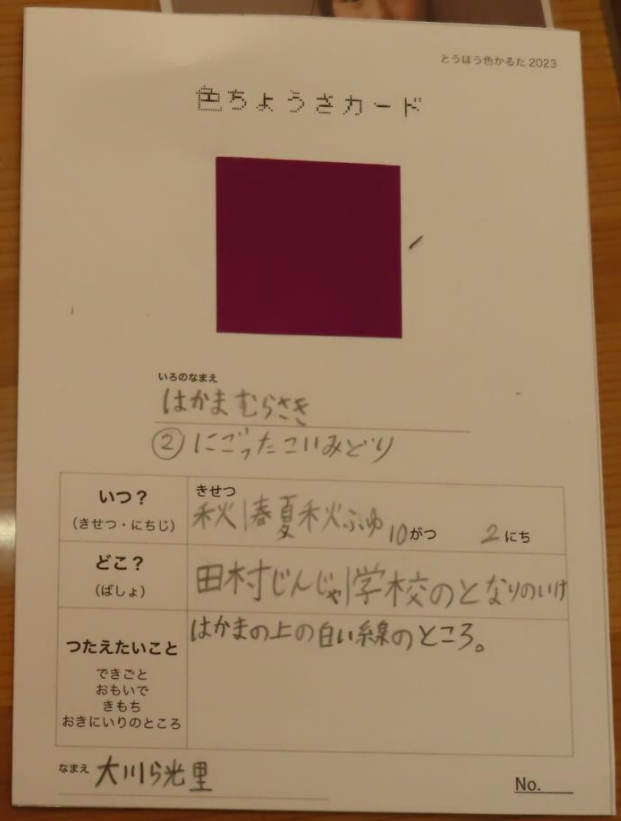 とうほう色かるた 2023
色ちょうさカード
いろのなまえ
はかまむらさき
②にごったこいみどり
いつ?
(きせつ・にちじ)
きせつ
秋|春夏秋ふゆ 10がつ 2にち
どこ?
(ばしょ)
田村じんじゃ|学校のとなりのいけ
つたえたいこと
できごと
おもいで
きもち
おきにいりのところ
はかまの上の白い線のところ。
なまえ 大川ら光里
No.